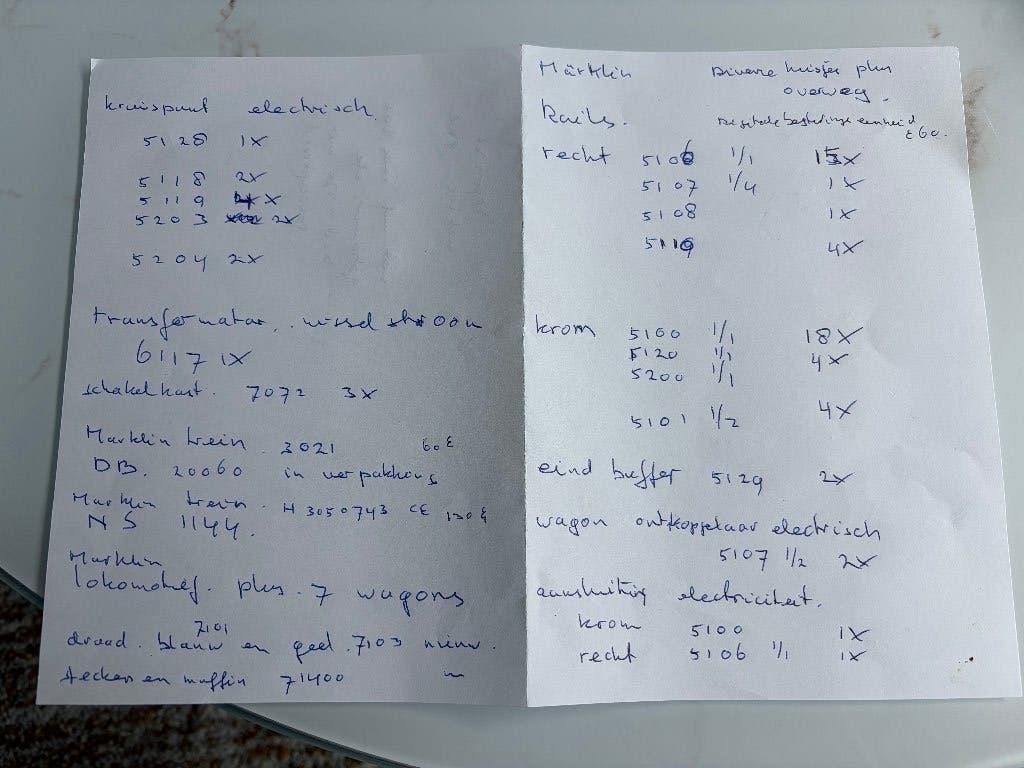 kruispunt electrisch
5128 1X
5118 2X
5119 X
5203 2X
5204 2X
transformator.. wissel stroom
6117 1X
schakelkast. 7072 3X
Marklin trein. 3021 60€
DB. 20060 in verpakking
Marklin trein. H 3050743 CE 130€
NS 1144.
Marklin
lokomotief. plus. 7 wagons
7101
draad. blauw en geel. 7103 nieuw.
stecker en muffin 71400 ~
Märklin Diverse huisjes plus
overweg.
Rails. eenheid
€60.
recht 5106 1/1 15X
5107 1/4 1X
5108 1X
5119 4X
krom 5100 1/1 18X
5120 1/1 4X
5200 1/1
5101 1/2 4X
eind buffer 5129 2X
wagon ontkoppelaar electrisch
5107 1/2 2X
aansluiting electriciteit.
krom 5100 1X
recht 5106 1/1 1X